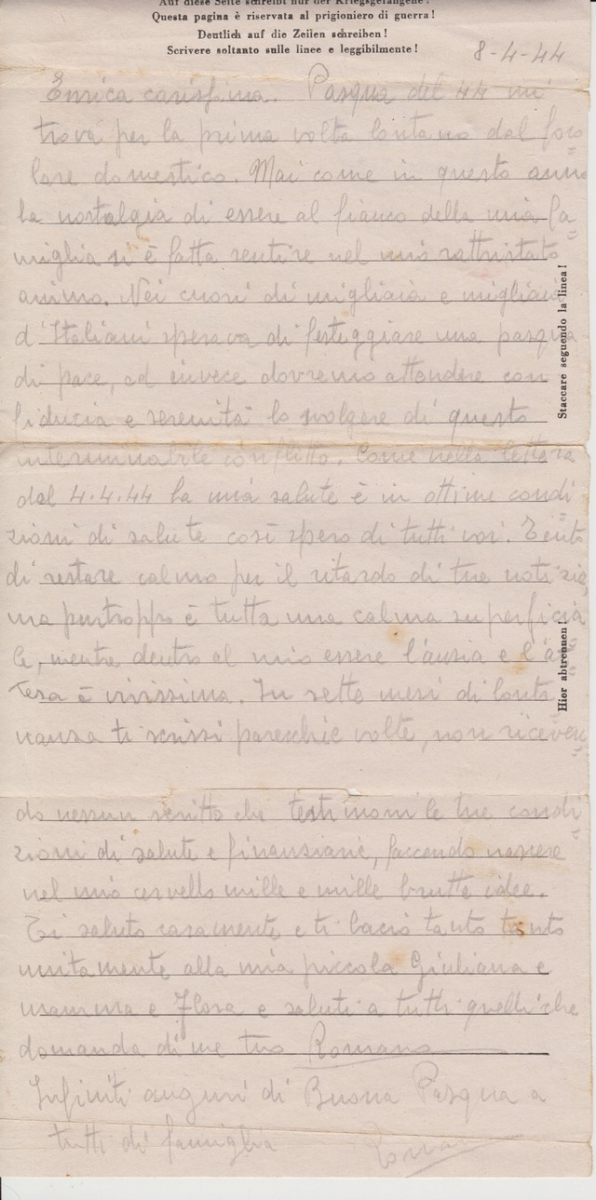 Auf diese Seite schreibt nur der Kriegsgefangene!
Questa pagina è riservata al prigioniero di guerra!
Deutlich auf die Zeilen schreiben!
Scrivere soltanto sulle linee e leggibilmente!
8-4-44
Enrica carissima. Pasqua del 44 mi
trova per la prima volta lontano dal foco=
lare domestico. Mai come in questo anno
la nostalgia di essere al fianco della mia fa=
miglia si è fatta sentire nel mio rattristato
animo. Nei cuori di migliaia e migliaia
d'Italiani sperava di festeggiare una pasqua
di pace, ed invece dovremo attendere con
fiducia e serenità lo svolgere di questo
interminabile conflitto. Come nella lettera
del 4.4.44 la mia salute è in ottime condi=
zioni di salute così spero di tutti voi. Tento
di restare calmo per il ritardo di tue notizie,
ma purtroppo è tutta una calma superficia=
le, mentre dentro al mio essere l'ansia e l'at=
tesa è vivissima. In sette mesi di lonta=
nanza ti scrissi parecchie volte, non riceven=
do nessun scritto che testimoni le tue condi=
zioni di salute e finanziarie, facendo nascere
nel mio cervello mille e mille brutte idee.
Ti saluto caramente e ti bacio tanto tanto
unitamente alla mia piccola Giuliana e
mamma e Flora e saluti a tutti quelli che
domanda di me tuo Romano
Infiniti auguri di Buona Pasqua a
tutti di famiglia
Staccare seguendo la linea!
Hier abtrennen!